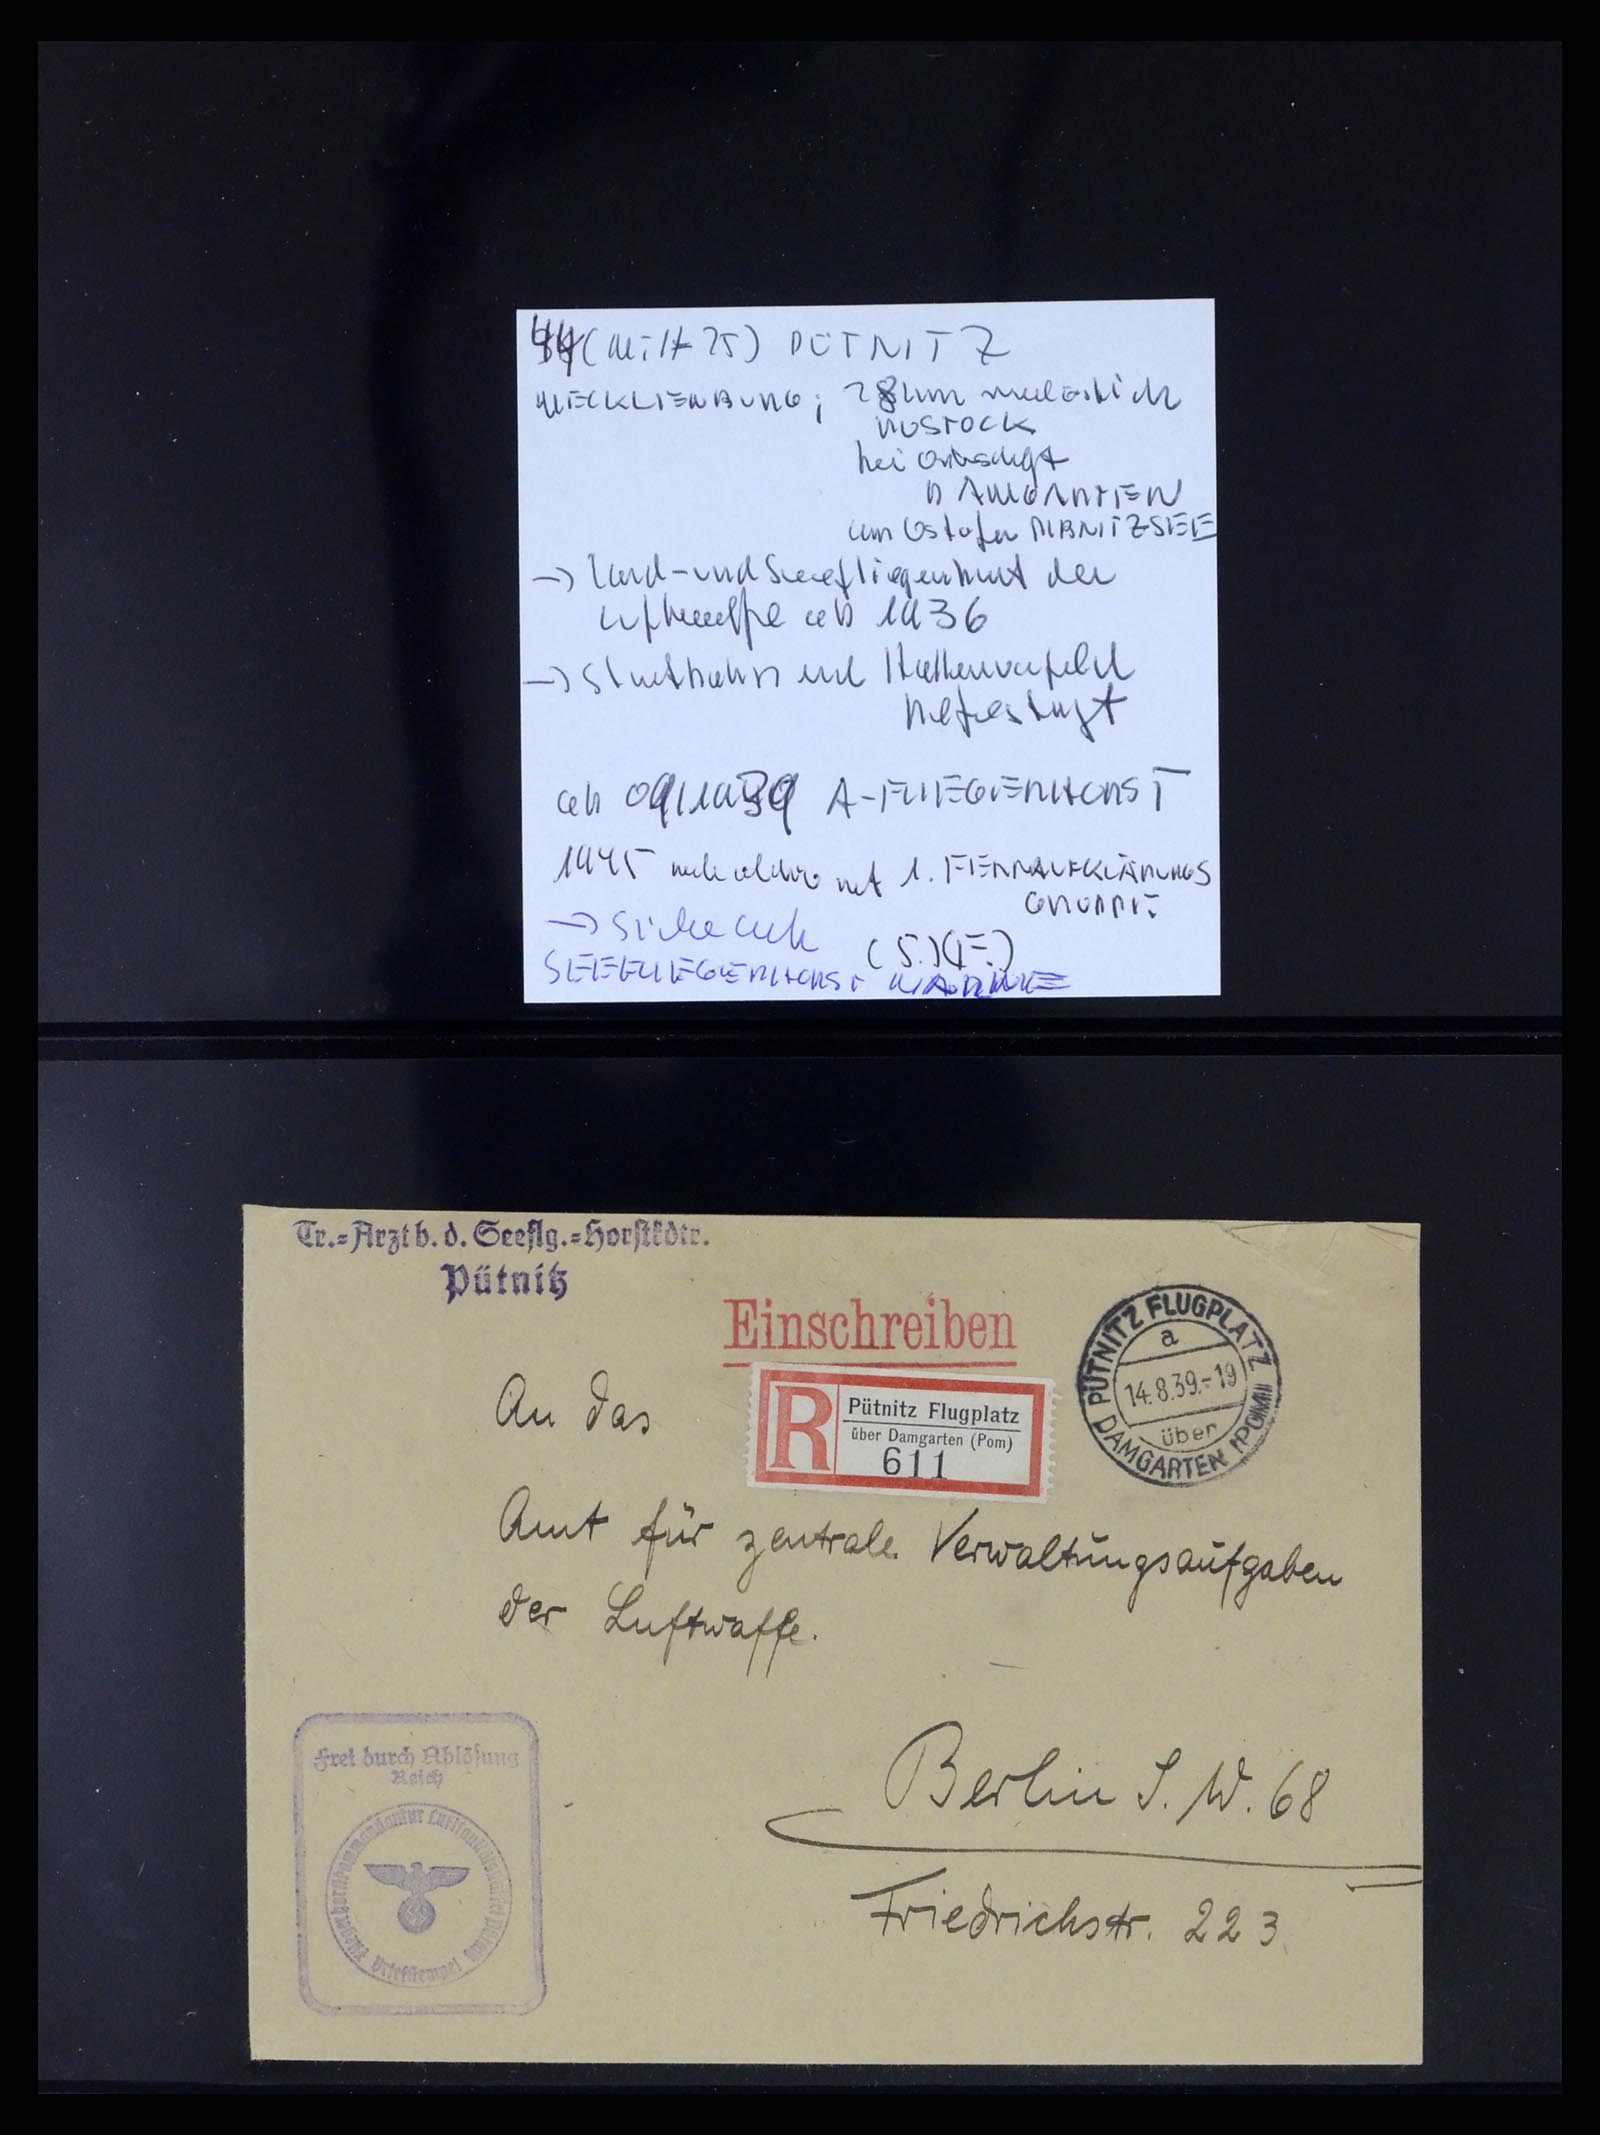 44 (Milit 25) PÜTNITZ
MECKLENBURG; 28km nordöstlich
ROSTOCK
bei Ortschaft
DAMGARTEN
am Ostufer RIBNITZSEE
→ Land- und Seefliegerhorst der
Luftwaffe ab 1936
→ Startbahn und Hallenvorfeld
befestigt
ab 09/1939 A-FLIEGERHORST
1945 mit 1. FERNAUFKLÄRUNGS
GRUPPE
→ siehe auch (S.)(F.)
SEEFLIEGERHORST
Tr.=Arzt b. d. Seeflg.=Horstkdtr.
Pütnitz
Einschreiben
PÜTNITZ FLUGPLATZ
a
14.8.39.-19
über
DAMGARTEN (POM)
R Pütnitz Flugplatz
über Damgarten (Pom)
611
An das
Amt für zentrale Verwaltungsaufgaben
der Luftwaffe.
Berlin S.W. 68
Friedrichstr. 223
Frei durch Ablösung
Reich
Fliegerhorstkommandantur
Briefstempel